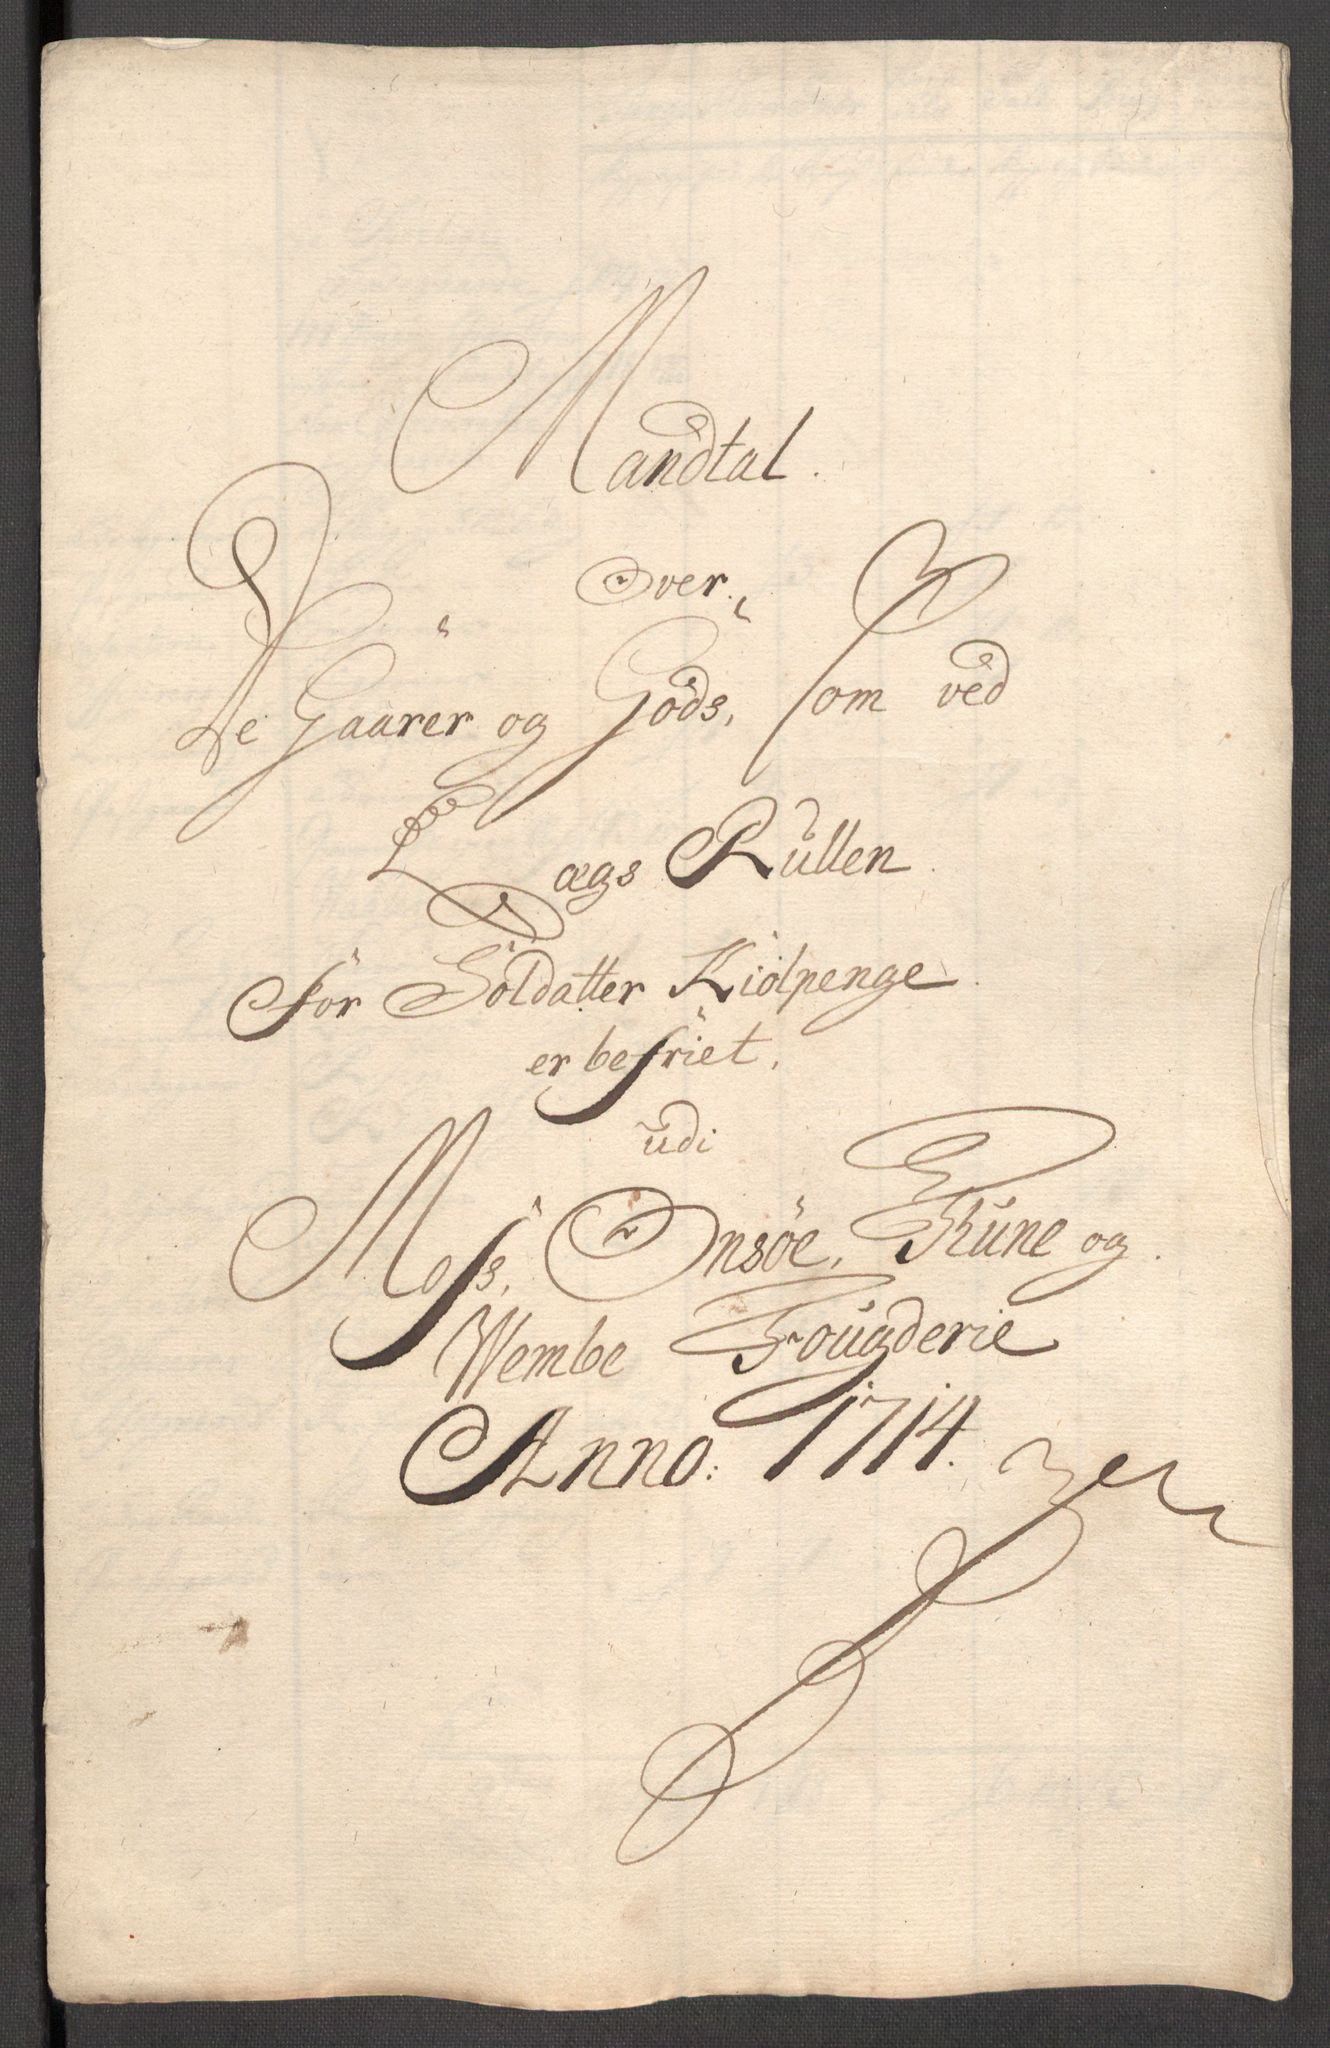 Mandtal.
Over.
De Gaarer og Göds, som ved
Lægs Rullen
for Soldatter Kiolpenge
er befriet,
udi
Moss, Onsöe, Thune og
Wembe Fougderie
Anno: 1714.